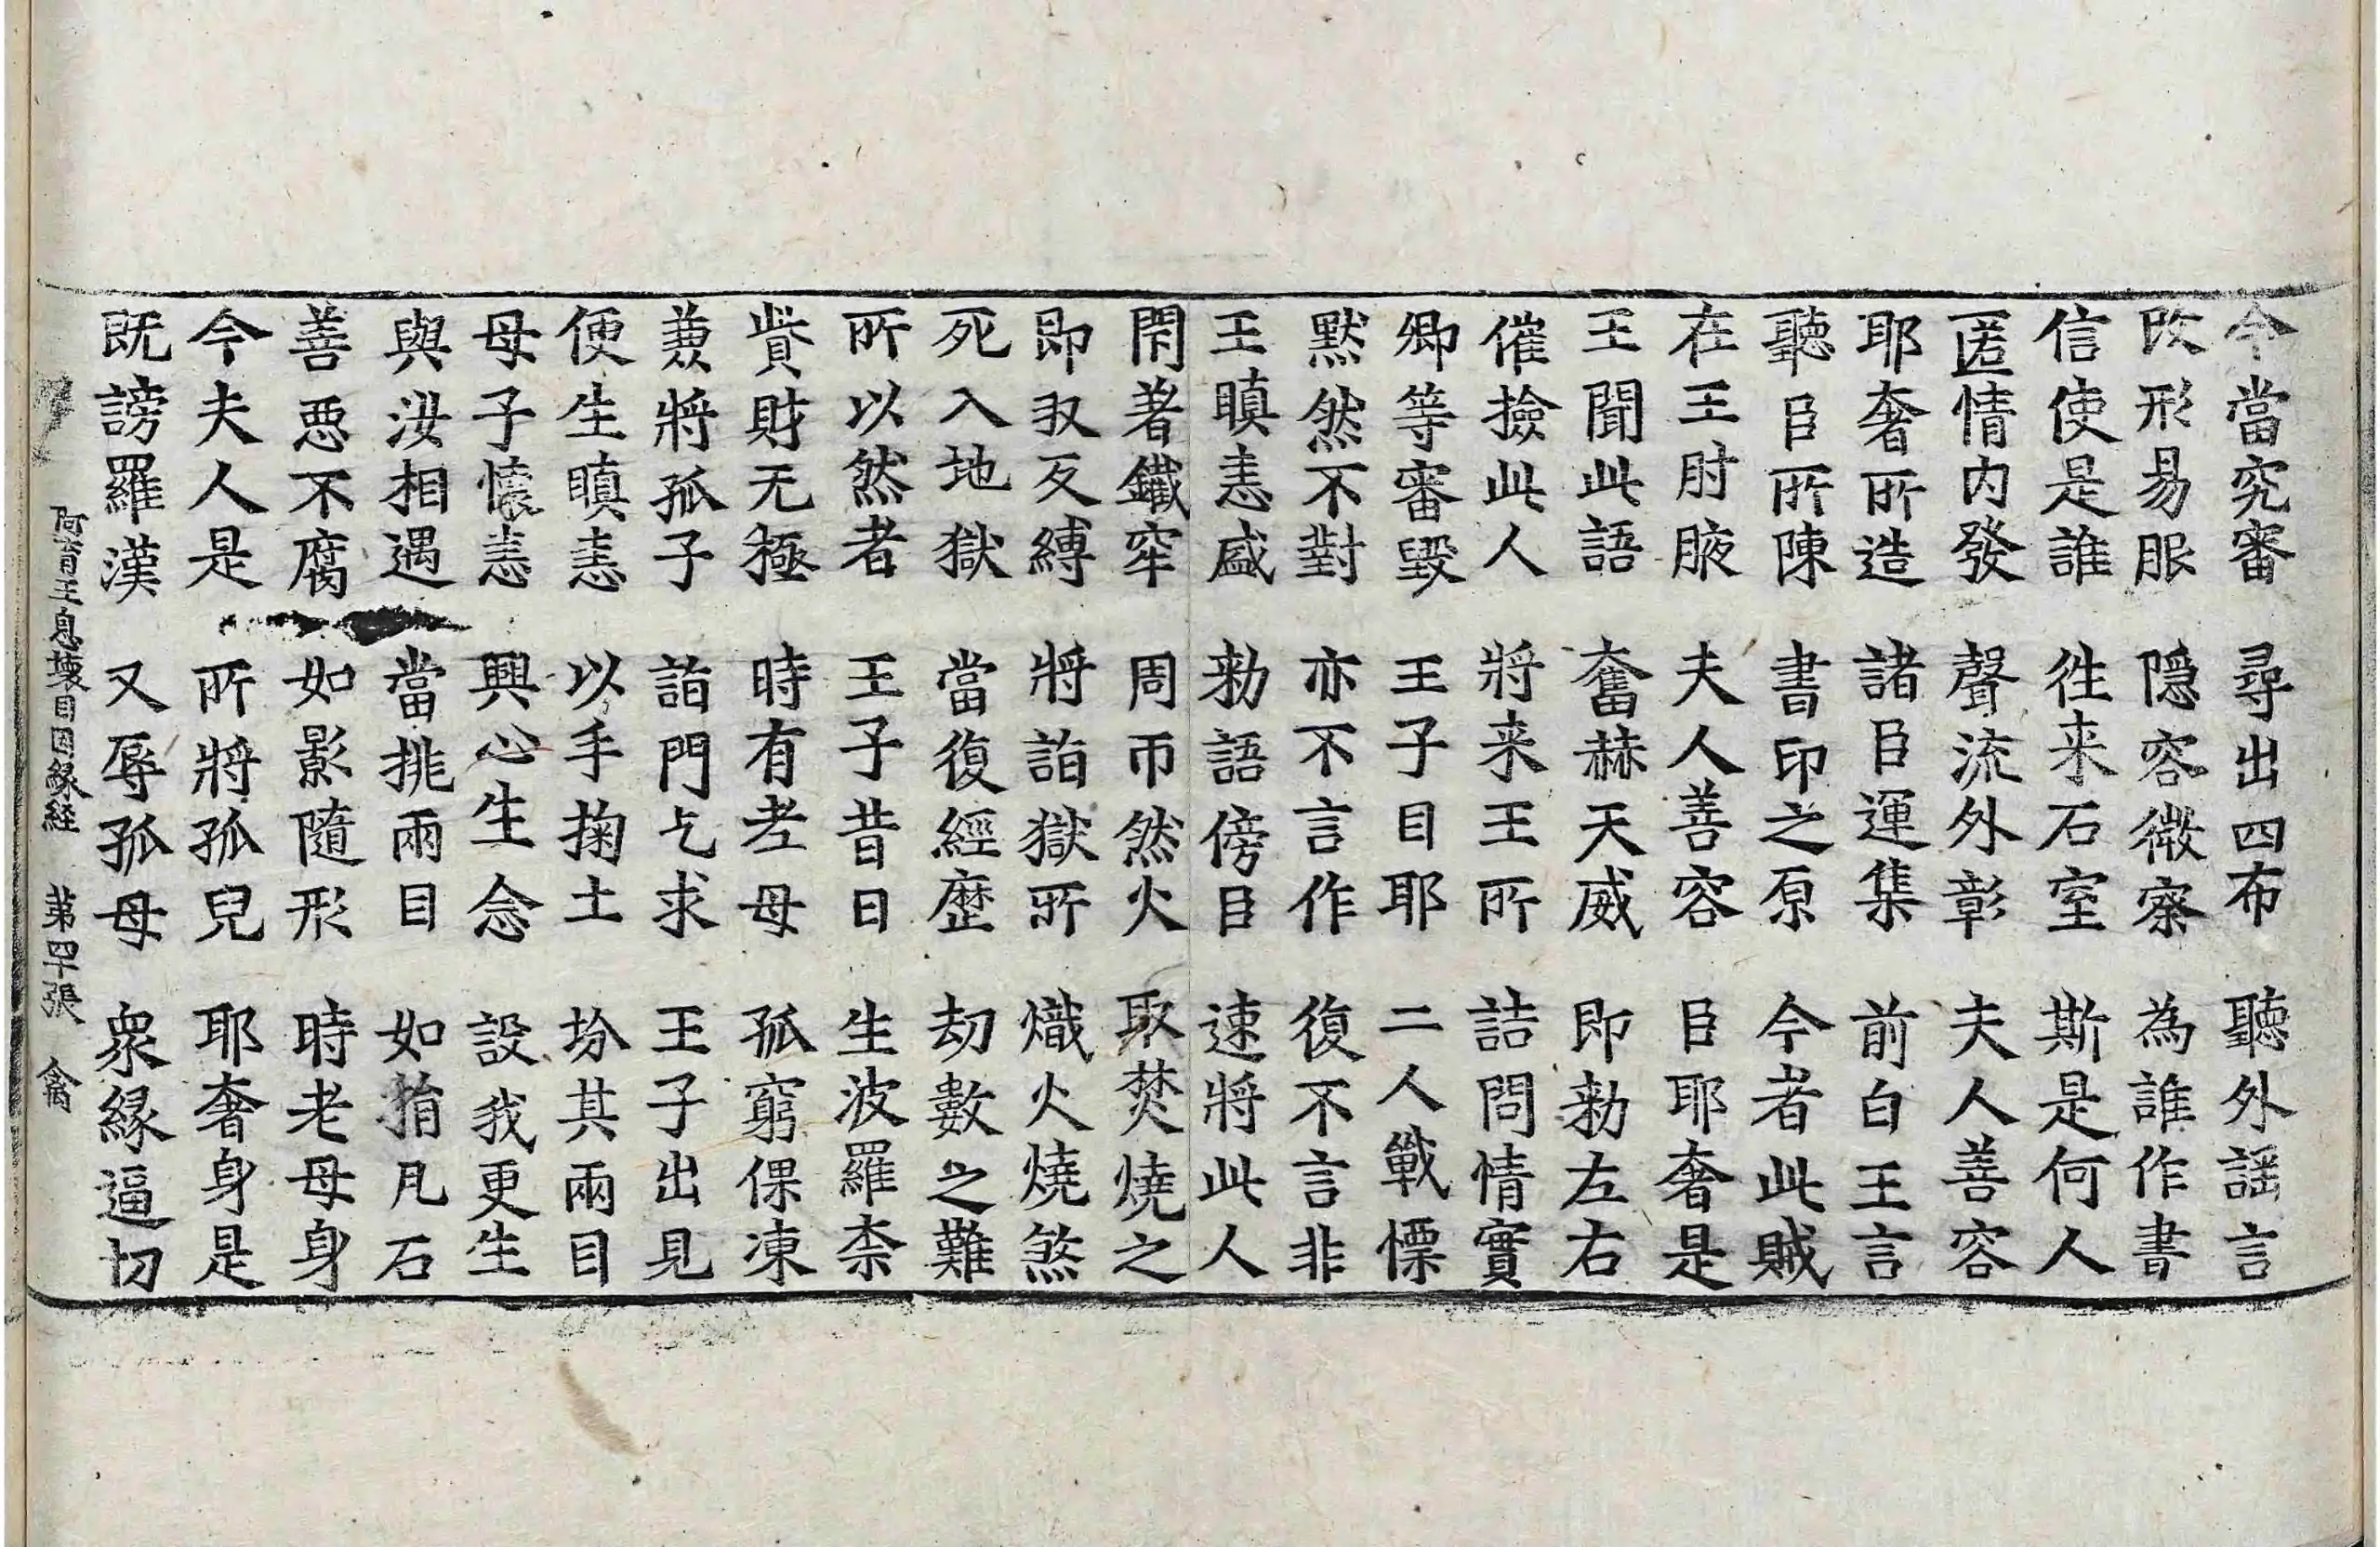 今當究審　尋出四布　聽外謡言
改形易服　隱容微察　為誰作書
信使是誰　徃来石室　斯是何人
匿情内發　聲流外彰　夫人善容
耶奢所造　諸臣運集　前白王言
聽臣所陳　書印之原　今者此賊
在王肘腋　夫人善容　臣耶奢是
王聞此語　奮赫天威　即勑左右
催撿此人　將来王所　詰問情實
卿等審毀　王子目耶　二人戰慄
默然不對　亦不言作　復不言非
王瞋恚盛　勑語傍臣　速將此人
閉著鐵牢　周帀然火　取焚燒之
即収反縛　將詣獄所　熾火燒煞
死入地獄　當復經歷　劫數之難
所以然者　王子昔日　生波羅柰
貲財无極　時有老母　孤窮倮凍
兼將孤子　詣門乞求　王子出見
便生瞋恚　以手掬土　坋其兩目
母子懷恚　興心生念　設我更生
與汝相遇　當挑兩目　如指凡石
善惡不腐　如影隨形　時老母身
今夫人是　所將孤兒　耶奢身是
既謗羅漢　又辱孤母　衆緣逼切
阿育王息壞目因緣経　第四十張　禽